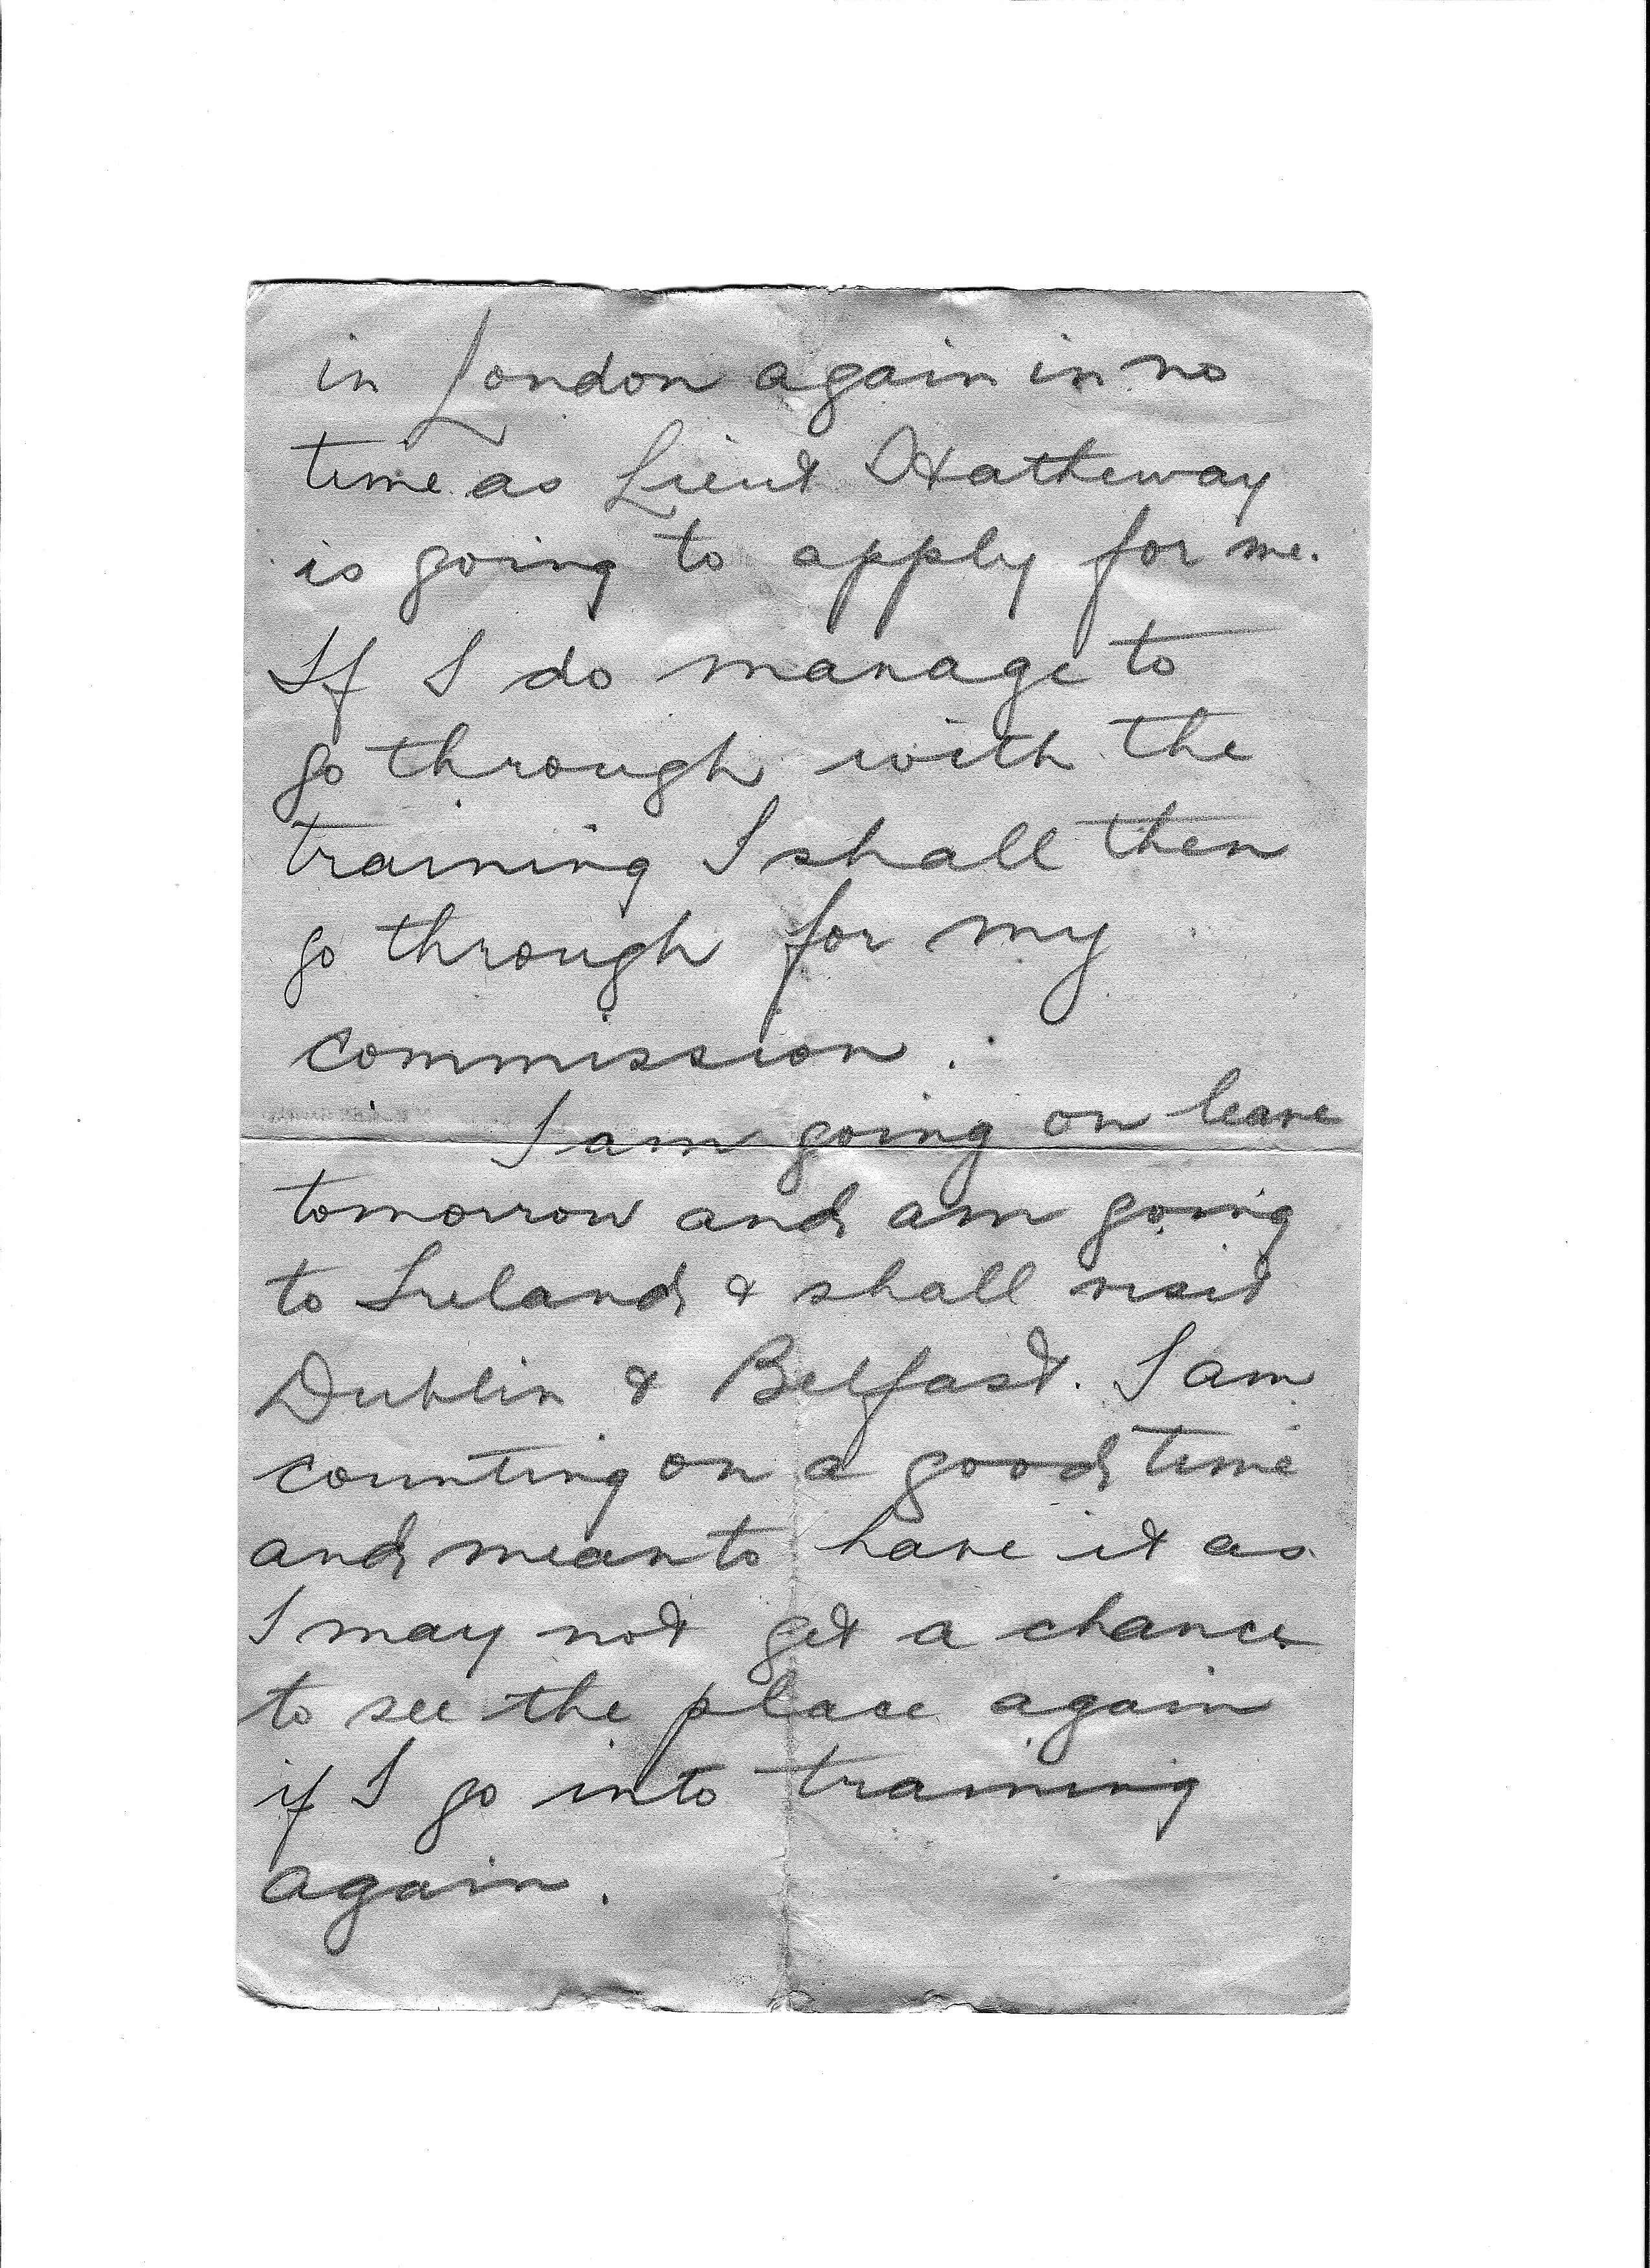 in London again in no
time as Lieut Hatheway
is going to apply for me.
If I do manage to
go through with the
training I shall then
go through for my
commission.
I am going on leave
tomorrow and am going
to Ireland & shall visit
Dublin & Belfast. I am
counting on a good time
and mean to have it as
I may not get a chance
to see the place again
if I go into training
again.